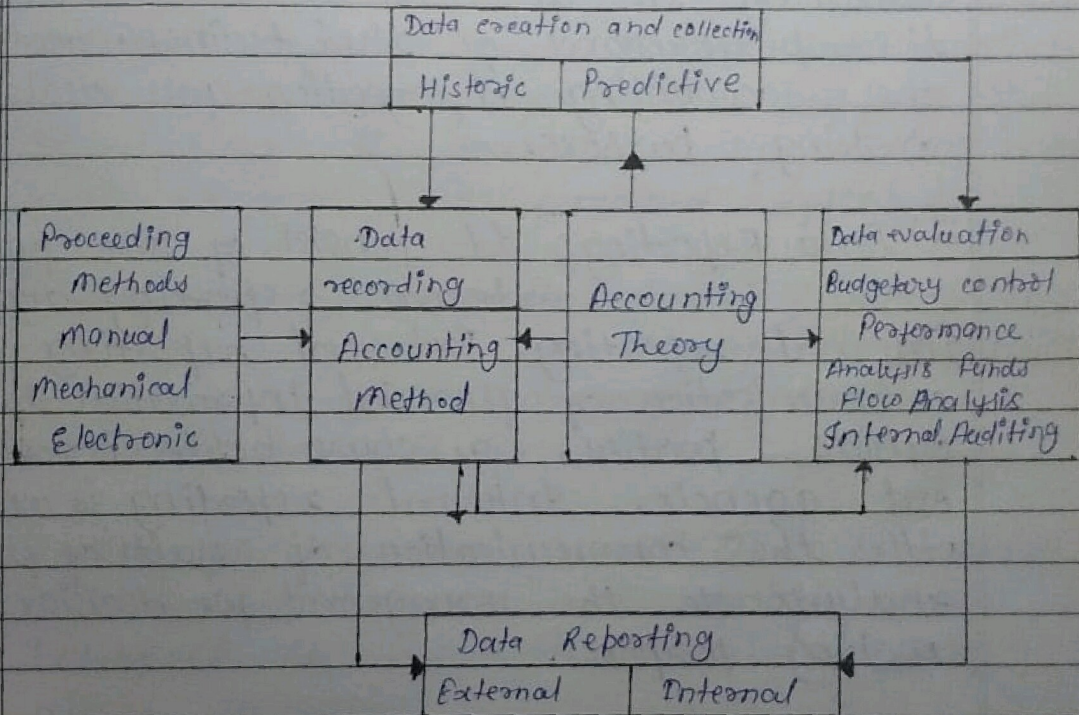 Data creation and collection
Historic Predictive
Proceeding
Methods
Manual
Mechanical
Electronic
Data
recording
Accounting
Method
Accounting
Theory
Data evaluation
Budgetory control
Performance
Analysis Funds
flow Analysis
Internal Auditing
Data Reporting
External Internal